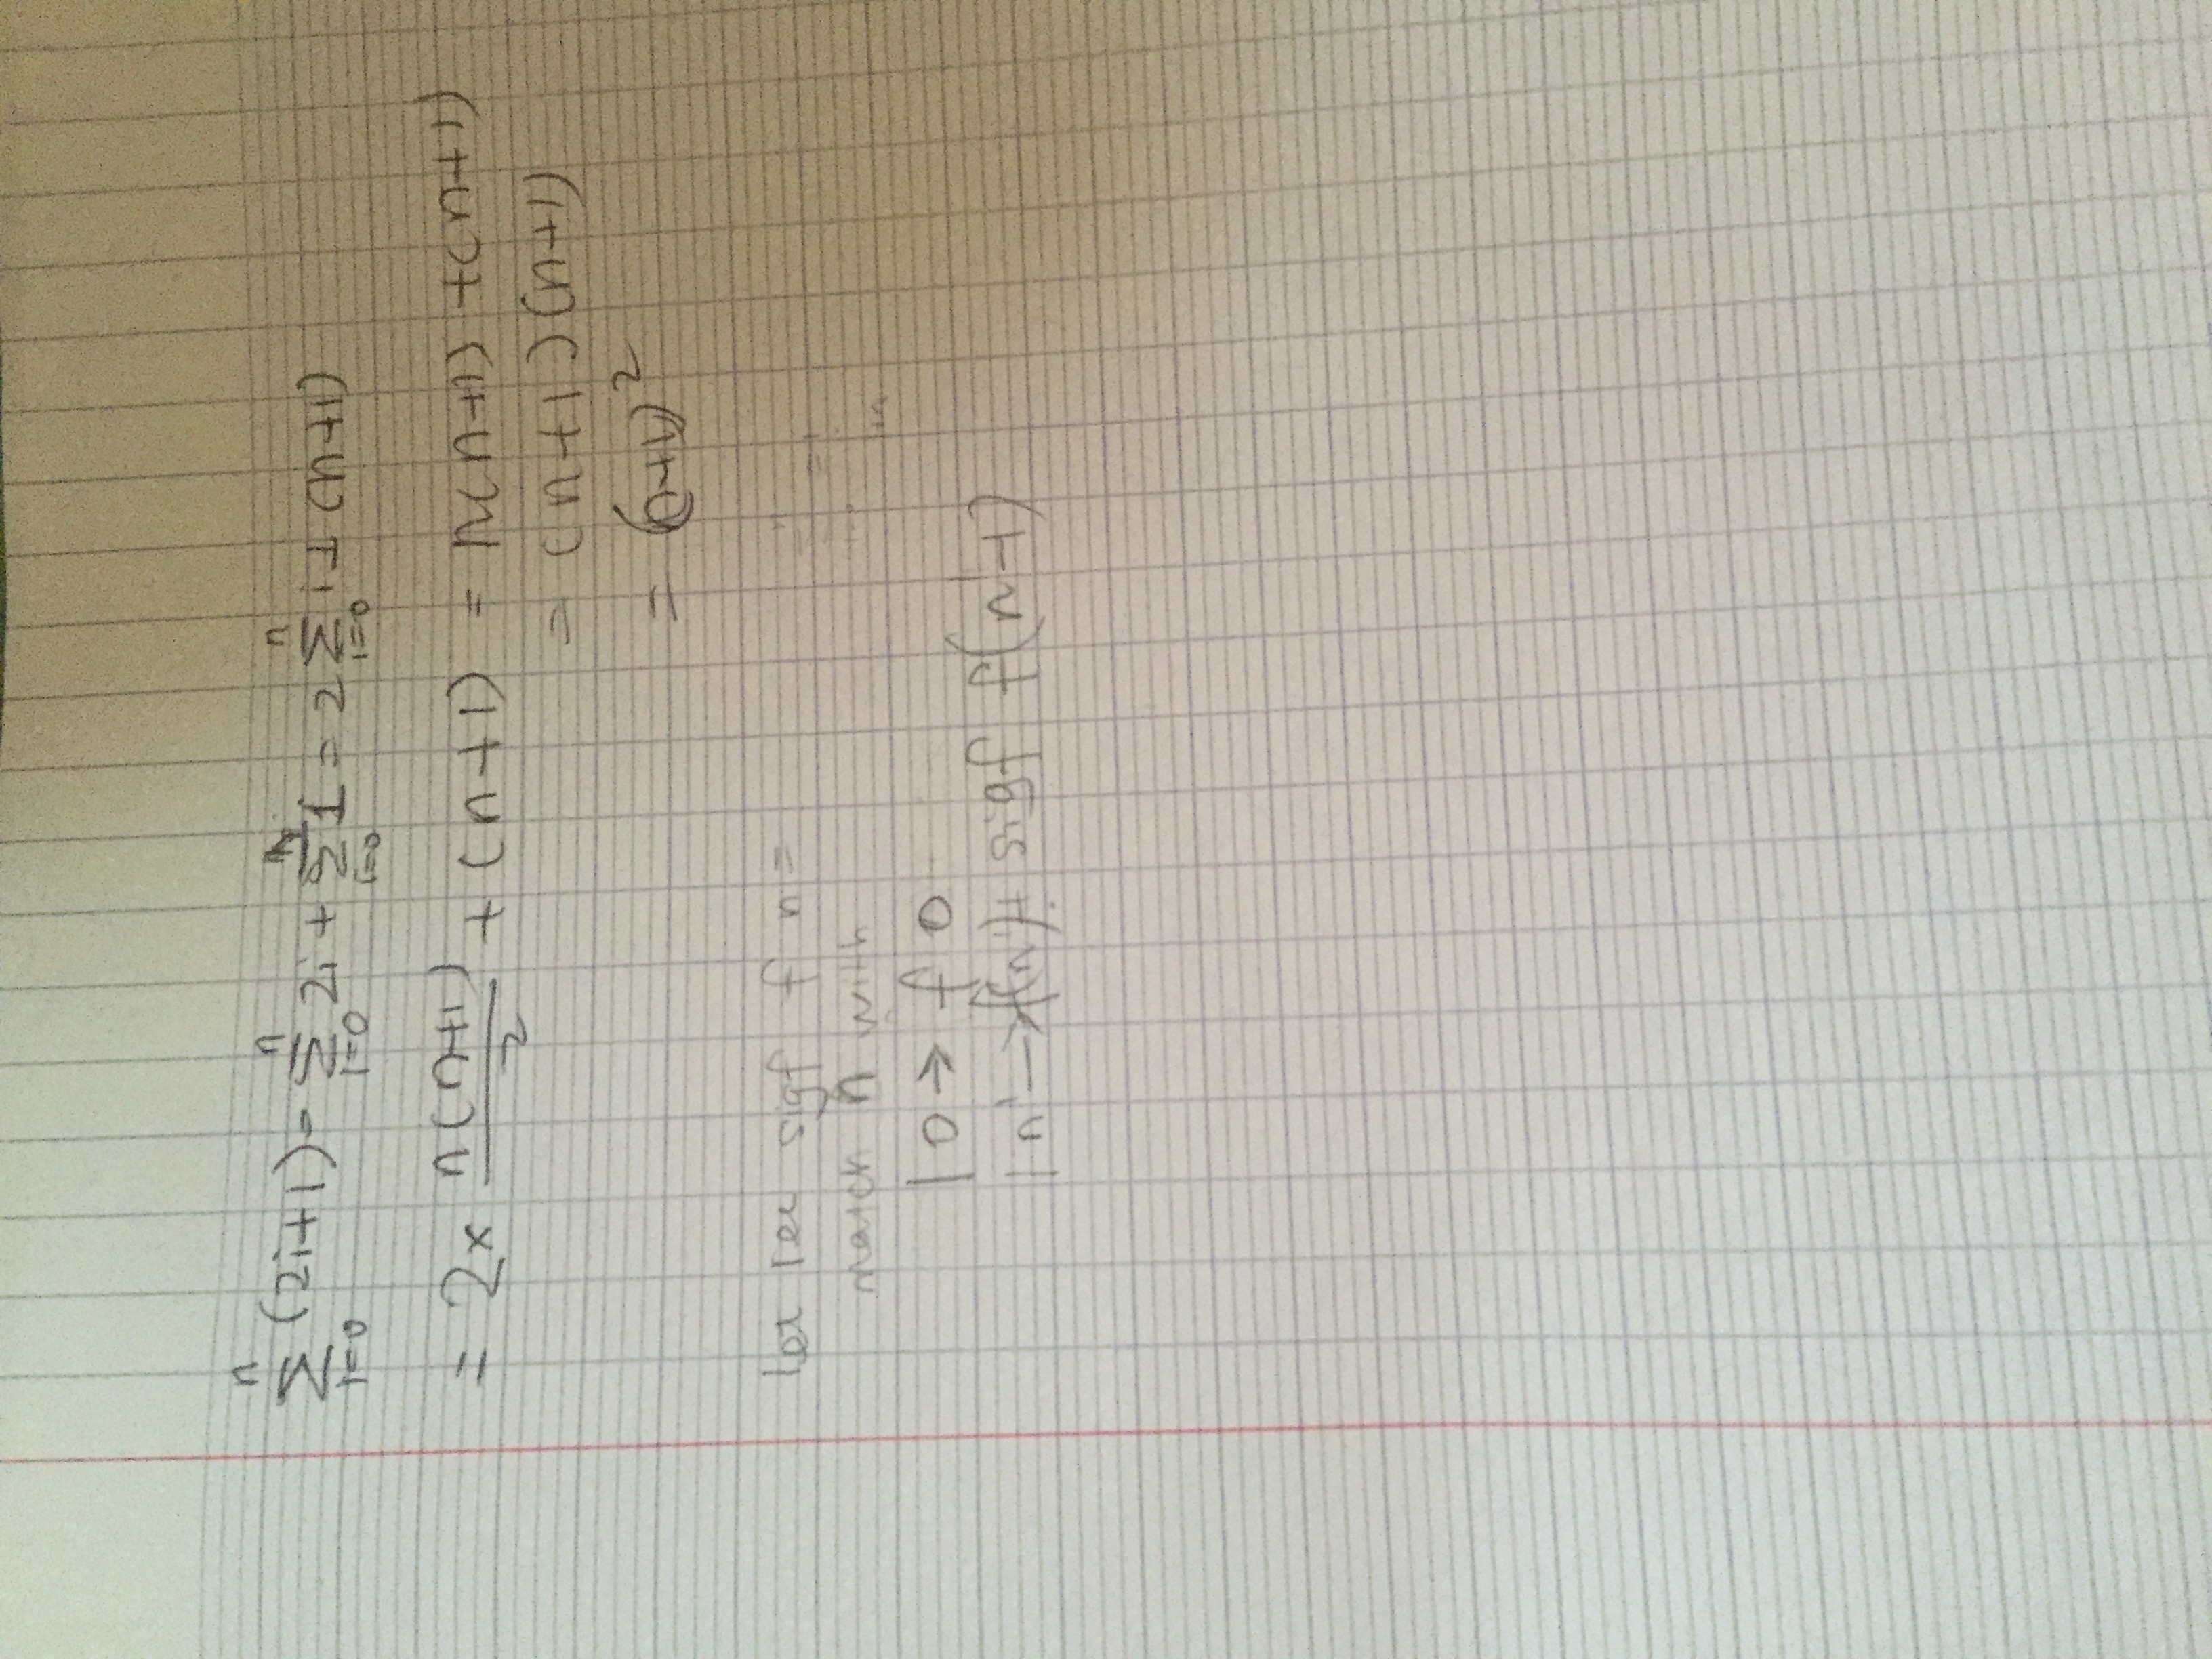 ∑_{i=0}^{n} (2i+1) = ∑_{i=0}^{n} 2i + ∑_{i=0}^{n} 1 = 2 ∑_{i=0}^{n} i + (n+1)
= 2 × n(n+1)/2 + (n+1) = n(n+1) + (n+1)
= (n+1)(n+1)
= (n+1)²
let rec sigf f n =
match n with
| 0 → f 0
| n' → f(n') + sigf f(n'-1)